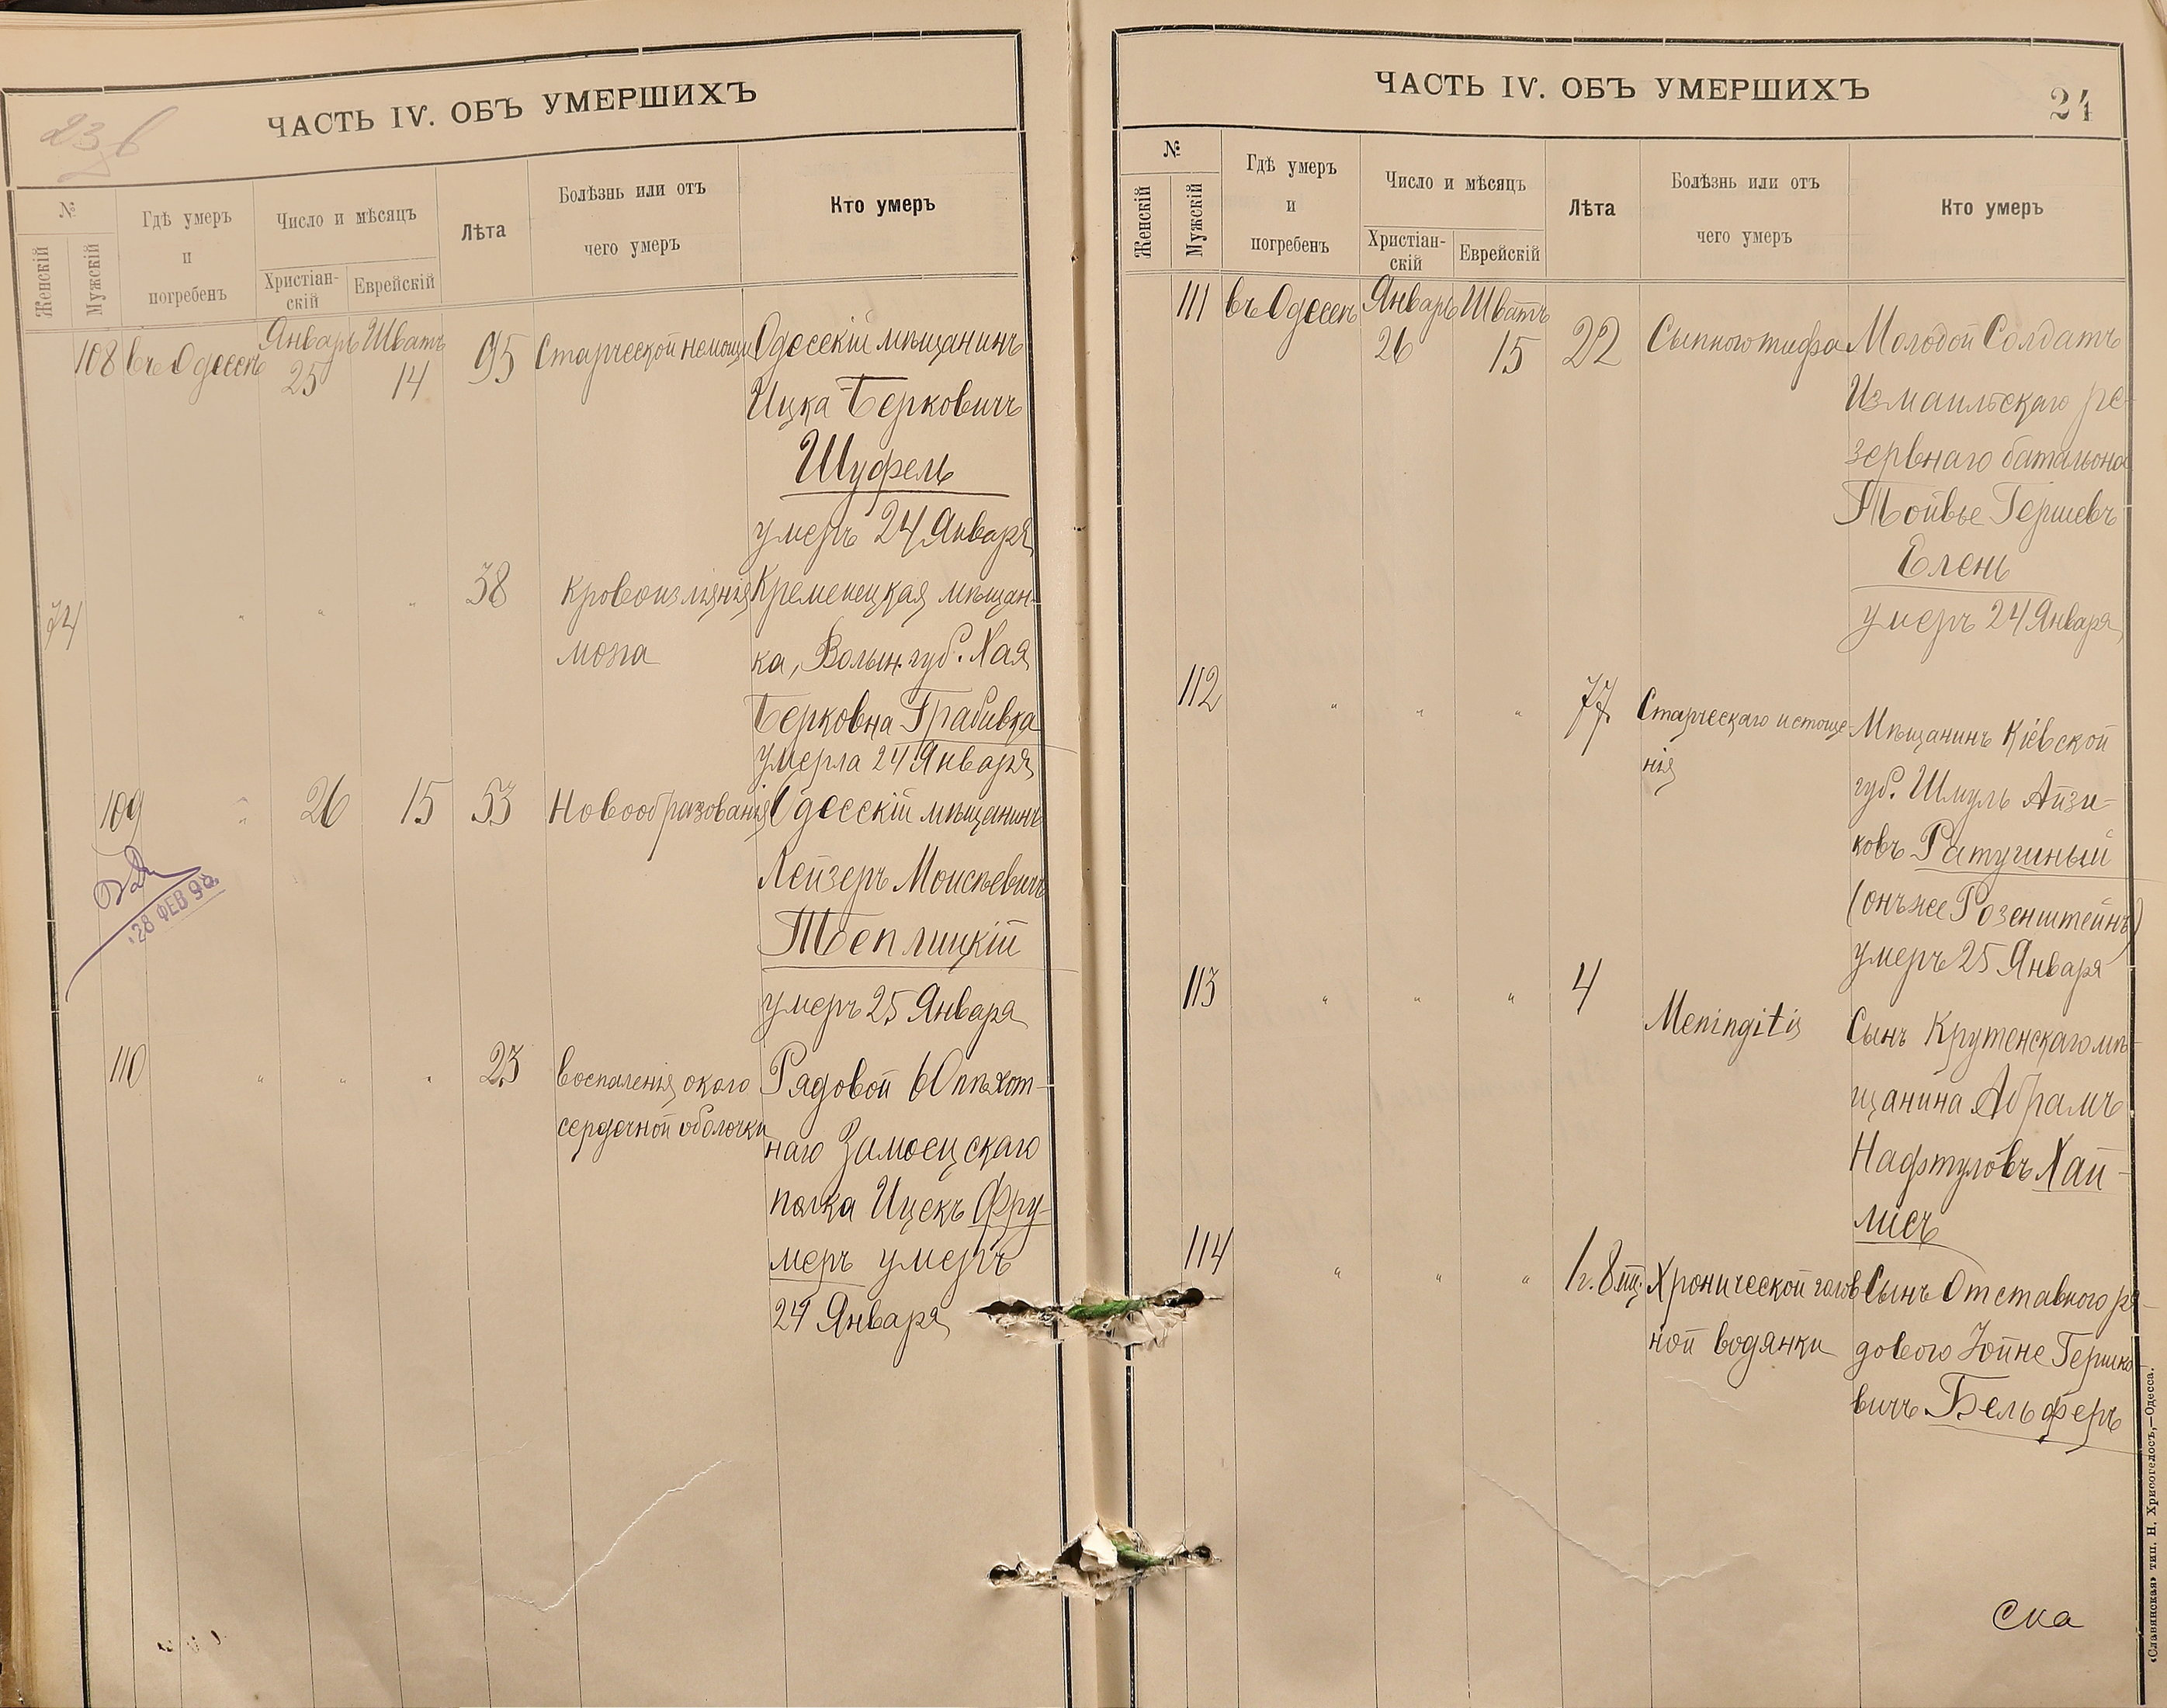 23 в
ЧАСТЬ IV. ОБЪ УМЕРШИХЪ
№
Женскій
Мужскій
Гдѣ умеръ
и
погребенъ
Число и мѣсяцъ
Христіан-
скій
Еврейскій
Лѣта
Болѣзнь или отъ
чего умеръ
Кто умеръ
108 въ Одессѣ Январь 25 Шватъ 14 95 Старческой немощи Одесскій мѣщанинъ
Ицка Берковичъ
Шуфель
умеръ 24 Января
74 " " " 38 Кровоизліянія Кременецкая мѣщан-
мозга ка, Волын. губ. Хая
Берковна Грабивка
умерла 24 Января
109 " 26 15 53 Новообразованія Одесскій мѣщанинъ
Лейзеръ Моисѣевичъ
Теплицкій
умеръ 25 Января
28 ФЕВ 98.
110 " " " 23 воспаленія около Рядовой 60 пѣхот-
сердечной оболочки наго Замосцскаго
полка Ицекъ Фру-
меръ умеръ
24 Января
ЧАСТЬ IV. ОБЪ УМЕРШИХЪ
24
№
Женскій
Мужскій
Гдѣ умеръ
и
погребенъ
Число и мѣсяцъ
Христіан-
скій
Еврейскій
Лѣта
Болѣзнь или отъ
чего умеръ
Кто умеръ
111 въ Одессѣ Январь 26 Шватъ 15 22 Сыпного тифа Молодой Солдатъ
Измаильскаго ре-
зервнаго баталіона
Тойвье Гершевъ
Елень
умеръ 24 Января
112 " " " 77 Старческаго истоще- Мѣщанинъ Кіевской
нія губ. Шмуль Айзи-
ковъ Ратушный
(онъ же Розенштейнъ)
умеръ 25 Января
113 " " " 4 Meningitis Сынъ Крутенскаго мѣ-
щанина Абрамъ
Нафтуловъ Хай-
мисъ
114 " " " 1 г. 8 мц. Хронической голов Сынъ Отставного ря-
ной водянки дового Іойне Гершко-
вичъ Бельферъ
ска
«Славянская» тип. Н. Хрисогелосъ,—Одесса.